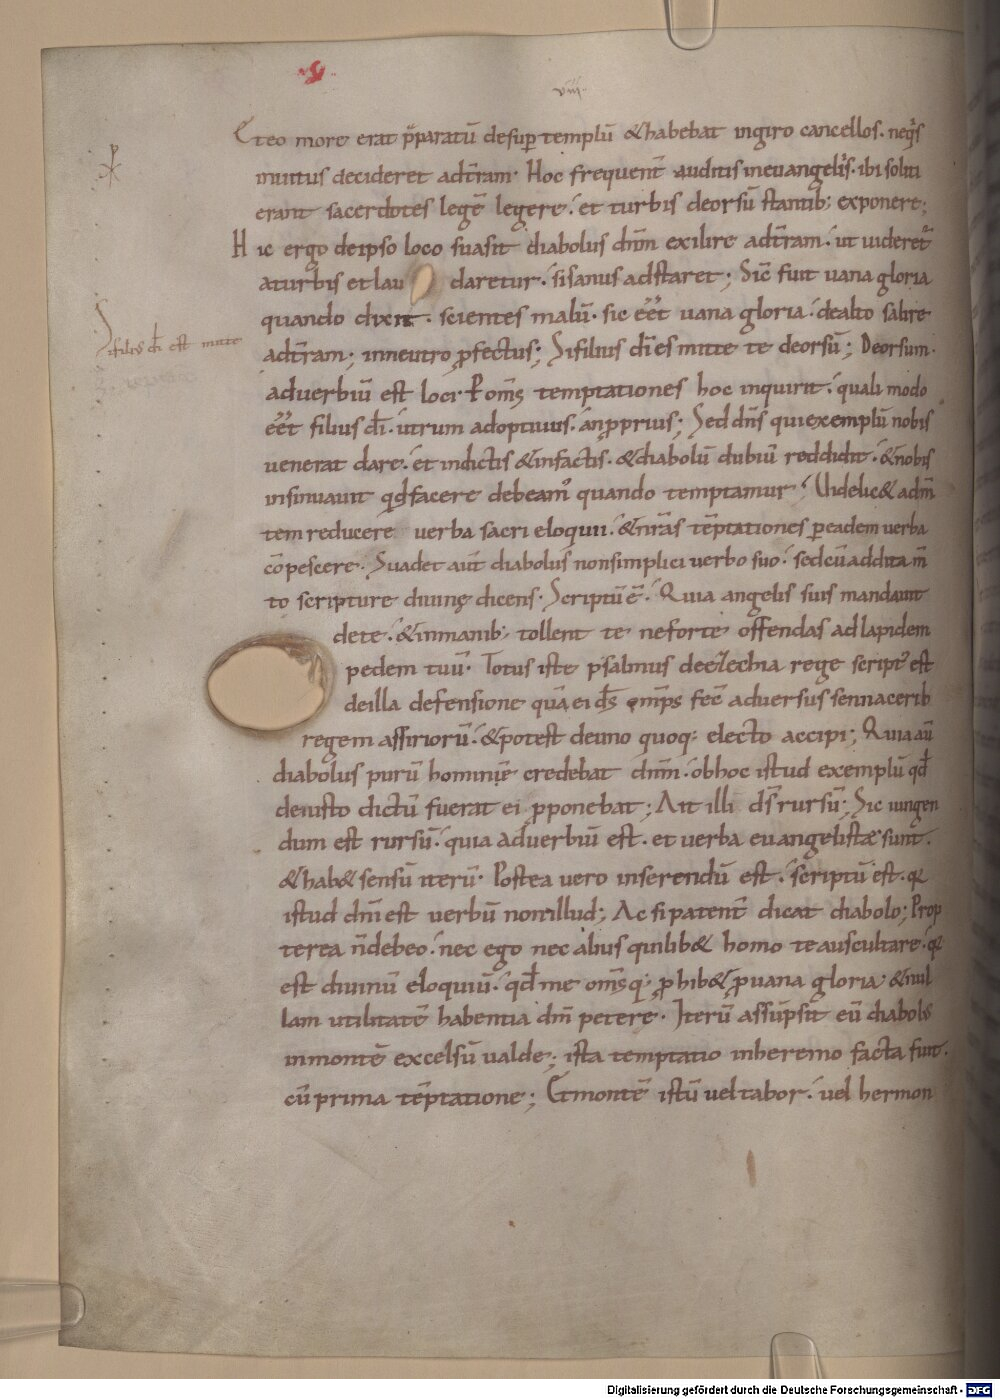 viiii
Eteo more erat p̄paratū desup templū &habebat ingiro cancellos. neq̄s
inuitus decideret adt̄ram. Hoc frequent̄ auditis ineuangeliis. ibi soliti
erant sacerdotes legē legere. et turbis deorsū stantib; exponere;
Hic ergo deipso loco suasit diabolus dnm̄ exilire adt̄ram. ut uideret̄
aturbis et lau daretur. sisanus adstaret; Sic̄ fuit uana gloria
quando dixit. scientes malū. sic eēt uana gloria. dealto salire
adt̄ram; inneutro ꝓfectus; Sifilius dī es mitte te deorsū; Deorsum.
Sifilius dī est mitte
aduerbiū est loci. P om̄s temptationes hoc inquirit. quali modo
eēt filius dī. utrum adoptiuus. anꝓprius; Sed dn̄s quiexemplū nobis
uenerat dare. et indictis &infactis. &diabolū dubiū reddidit. &nobis
insinuauit qd̄facere debeam᾽ quando temptamur; Uidelic& adm̄
tem reducere uerba sacri eloquii. &nr̄as tēptationes ꝑeadem uerba
cōpescere. Suadet aut̄ diabolus nonsimplici uerbo suo. sedcū addita m̄
to scripture diuinę dicens. Scriptū ē. Quia angelis suis mandauit
dete. &inmanib; tollent te neforte offendas adlapidem
pedem tuū. Totus iste psalmus deezechia rege script᾽ est
deilla defensione quā ei ds̄ omp̄s fec̄ aduersus sennacerib
regem assiriorū. &potest deuno quoq; electo accipi; Quia aū
diabolus purū hominē credebat dnm̄. obhoc istud exemplū qd̄
deiusto dictū fuerat ei ꝓponebat; Ait illi ds̄ rursū; Sic iungen
dum est rursū. quia aduerbiū est. et uerba euangelistæ sunt.
&hab& sensū iterū. Postea uero inserendū est. scriptū est. q̄
istud dnī est uerbū nonillud; Ac si patent̄ dicat diabolo; Prop
terea n̄debeo. nec ego nec alius quilib& homo te auscultare. q̄
est diuinū eloquiū. qd̄ me om̄sq; ꝓhib& ꝓ uana gloria &nul
lam utilitatē habentia dnm̄ petere. Iterū assūpsit eū diabolus
inmontē excelsū ualde; ista temptatio inheremo facta fuit.
cū prima tēptatione; Et montē istū uel tabor. uel hermon
Digitalisierung gefördert durch die Deutsche Forschungsgemeinschaft - DFG